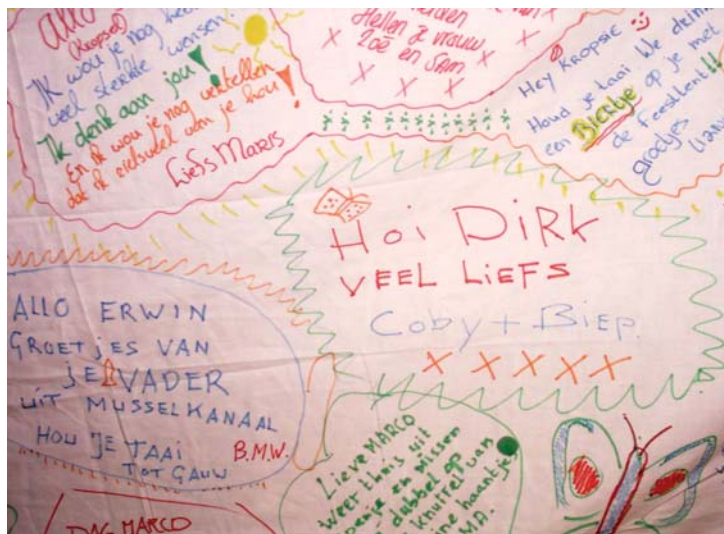 (Kropsel)
Ik wou je nog heel
veel sterkte wensen.
Ik denk aan jou!
En ik wou je nog vertellen
dat ik zielsveel van je hou!
Liefs Maris
Hellen je vrouw,
Zoë en SAM
X X X X X X
Hey KROPSIE
Houd je taai We drinken
een Biertje op je met
de Feesttent!!
groetjes
Hoi DIRK
VEEL LIEFS
Coby + Biep.
X X X X X
ALLO ERWIN
GROETJES VAN
JE VADER
UIT MUSSELKANAAL
HOU JE TAAI
TOT GAUW
B.M.W.
Lieve MARCO
Weer thuis uit
en missen
dubbel op
knuffel van
haantje
MA.
DAG MARCO